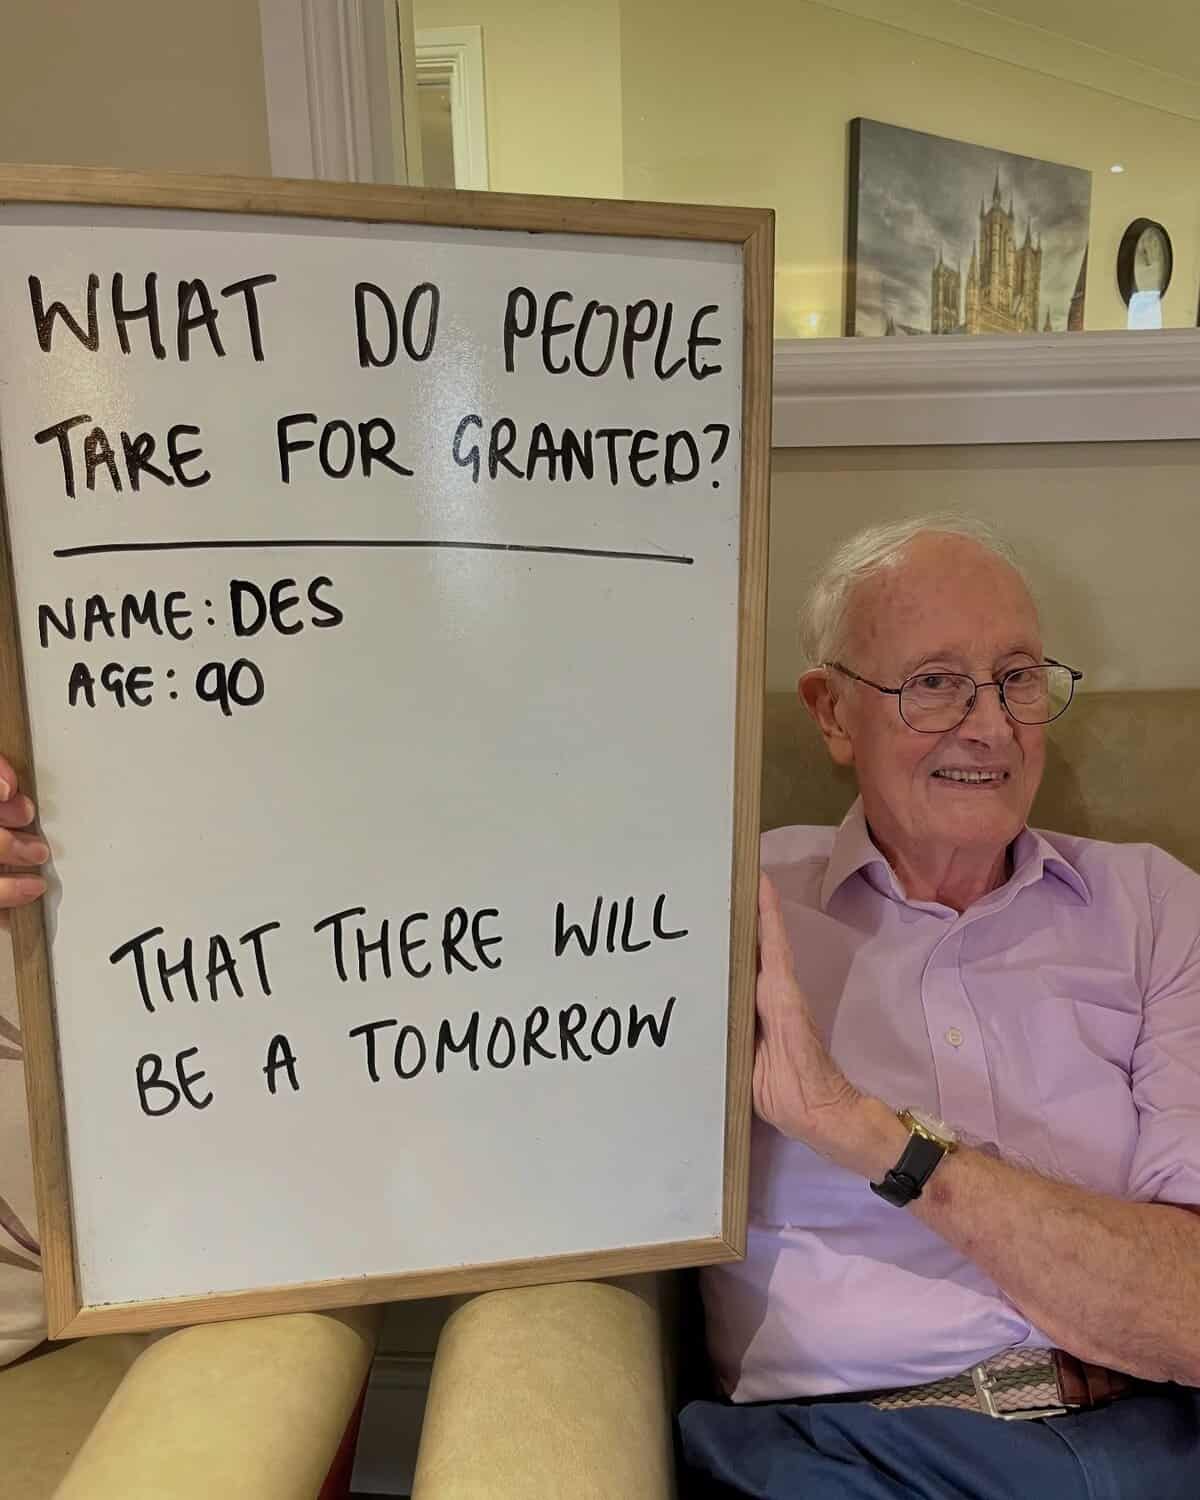 WHAT DO PEOPLE
TAKE FOR GRANTED?
NAME: DES
AGE: 90
THAT THERE WILL
BE A TOMORROW